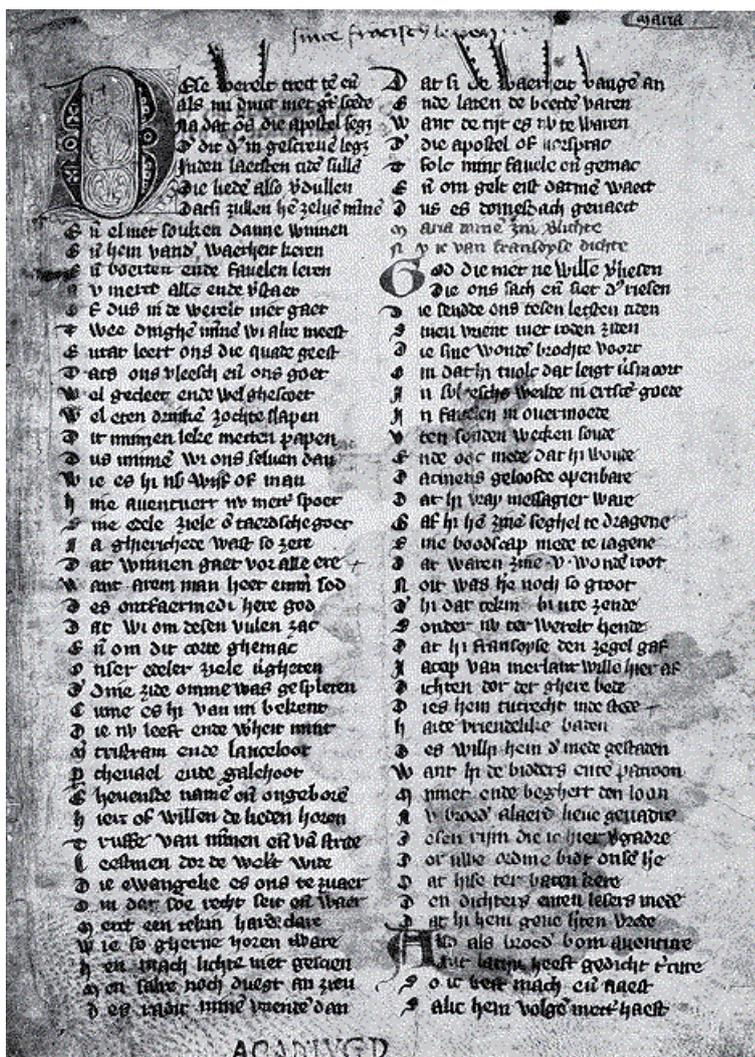 sinte francisc leven
maria
Dese werelt trect te eñ
als mi dinct met
Na dat ons die apostel seg
dit in gescreve leg
Inden laetsten tide sulle
Die liede also vdullen
Datsi zullen hē zelve minē
Eñ el niet souken danne winnen
Eñ hem vand waerheit keren
Eñ boerten ende favelen leren
Nv merct alle ende vstaet
Of dus in de werelt niet gaet
Twee dinghe minē wi alre meest
Entat leert ons die quade geest
Dats ons vleesch eñ ons goet
Wel gecleet ende wel ghescoet
Wel eten drinkē zochte slapen
Dit minnen leke metten papen
Dus minnē wi ons selven dan
Wie es hi nv wijf of man
Hine aventuert nv mett spoet
Sine edele ziele ō taerdsche goet
Ja ghierichede wast so zere
Dat winnen gaet vor alle ere
Want arem man heet emm sod
Des ontfaermedi here god
Dat wi om desen vulen zac
Eñ om dit corte ghemac
Onser edeler ziele
Dme zide omme was gespleten
Cume es hi van mi bekent
Die nv leeft ende wheit mint
Tristram ende lanceloot
Pchevael ende galehoot
Ghevensde namē eñ ongborē
Hier of willen de lieden horen
Truffe van minnen eñ vā stride
Leestmen dor de werelt wide
Die ewangelie es ons te zwaer
Om dat soe recht seit eñ waer
Merct een tekin harde clare
Wie so gherne horen ware
Hen mach lichte niet gescien
Men salre noch duegt an zien
Des radic minē vrienden dan
Dat si de waerheit vangē an
Ende laten de beerde varen
Want de tijt es nv te waren
D die apostel of sprac
Tfolc mint favele eñ gemac
Eñ om gelt eist datmē waect
Dus es domesdach genaect
Maria
Nv ic van fransoyse dichte
God die niet ne wille vliesen
Die ons sach eñ siet vriesen
Die sendde ons tesen letsten tiden
Sinen vrient niet
Die sine wonde brochte voort
Om dat hi tvolc dat leigt vsmoort
In vleesche weelde in ertsce goede
In favelen in overmoede
Vten sonden wecken soude
Ende ooc mede dat hi woude
Datmens geloofde openbare
Dat hi vray messagier ware
Gaf hi hē zine seghel te dragene
Sine boodscap mede te iagene
Dat waren zine .v. wonde root
Noit was hē noch so groot
D hi dat tekin bi ute zende
Sonder nv ter werelt hende
Dat hi fransoyse den zegel gaf
Jacop van merlant wille hier af
Dichten dor der ghere bede
Dies hem tutrecht inde stede
Hadde vriendelike baden
Des willi hem mede gestaden
Want hi de bidders ente patroon
Minnet ende beghert den loon
Nv brod alaerd lieve gevadre
Desen rijm die ic hier vgadre
Dor uwe ordine bidt onse he
Dat hise ter baten kere
Den dichters enten lesers mede
Dat hi hem geve sinen vrede
Also als brod bom aventure
Int latijn heeft gedicht
So ic best mach eñ naest
Salic hem volgē mett haest